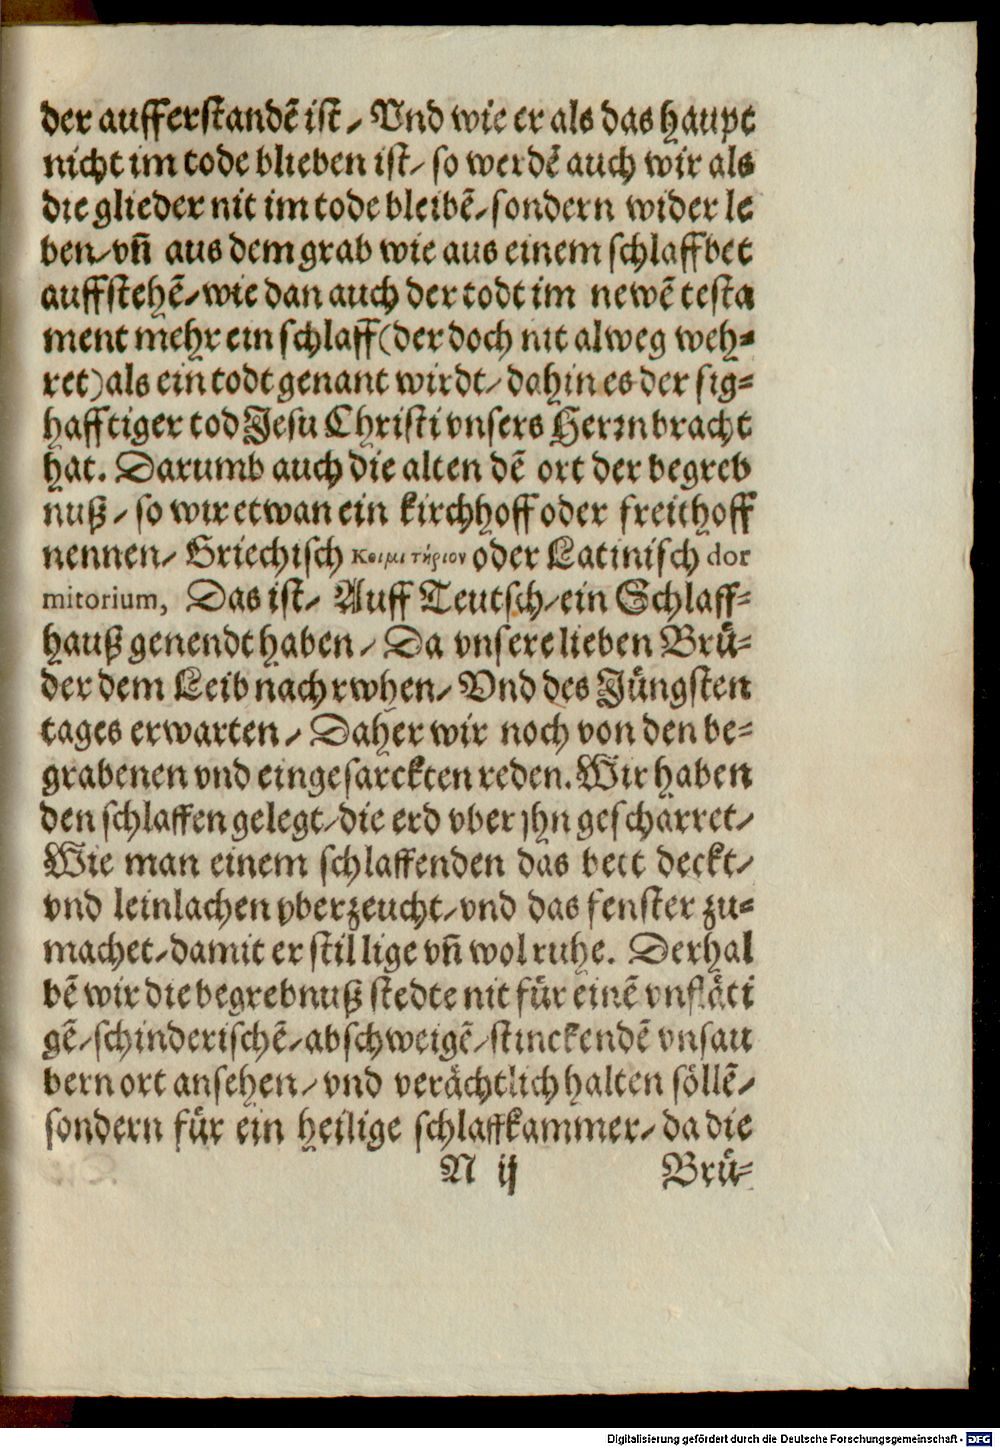 der aufferstandē ist / Vnd wie er als das haupt
nicht im tode blieben ist / so werdē auch wir als
die glieder nit im tode bleibē / sondern wider le
ben / vñ aus dem grab wie aus einem schlaffbet
auffstehē / wie dan auch der todt im newē testa
ment mehr ein schlaff (der doch nit alweg weh-
ret) als ein todt genant wirdt / dahin es der sig-
hafftiger tod Jesu Christi vnsers Herrn bracht
hat. Darumb auch die alten dē ort der begreb
nuß / so wir etwan ein kirchhoff oder freithoff
nennen / Griechisch Κοιμιτήριον oder Latinisch dor
mitorium, Das ist / Auff Teutsch / ein Schlaff-
hauß genendt haben / Da vnsere lieben Brü-
der dem Leib nach rwhen / Vnd des Jüngsten
tages erwarten / Daher wir noch von den be-
grabenen vnd eingesarckten reden. Wir haben
den schlaffen gelegt / die erd vber jhn gescharret /
Wie man einem schlaffenden das bett deckt /
vnd leinlachen vberzeucht / vnd das fenster zu-
machet / damit er still lige vñ wol ruhe. Derhal
bē wir die begrebnuß stedte nit für einē vnfläti
gē / schinderischē / abschweigē / stinckendē vnsau
bern ort ansehen / vnd verächtlich halten söllē /
sondern für ein heilige schlaffkammer / da die
N ij Brü-
Digitalisierung gefördert durch die Deutsche Forschungsgemeinschaft - DFG